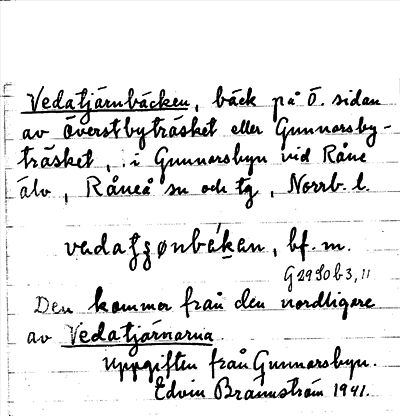 Vedatjärnbäcken, bäck på Ö. sidan
av Överstbyträsket eller Gunnarsby-
träsket, i Gunnarsbyn vid Råne
älv, Råneå sn och tg, Norrb. l.
vedatʒønbäkan, bf. m.
G 29 S0 b 3, 11
Den kommer från den nordligare
av Vedatjärnarna.
Uppgiften från Gunnarsbyn.
Edvin Brännström 1941.